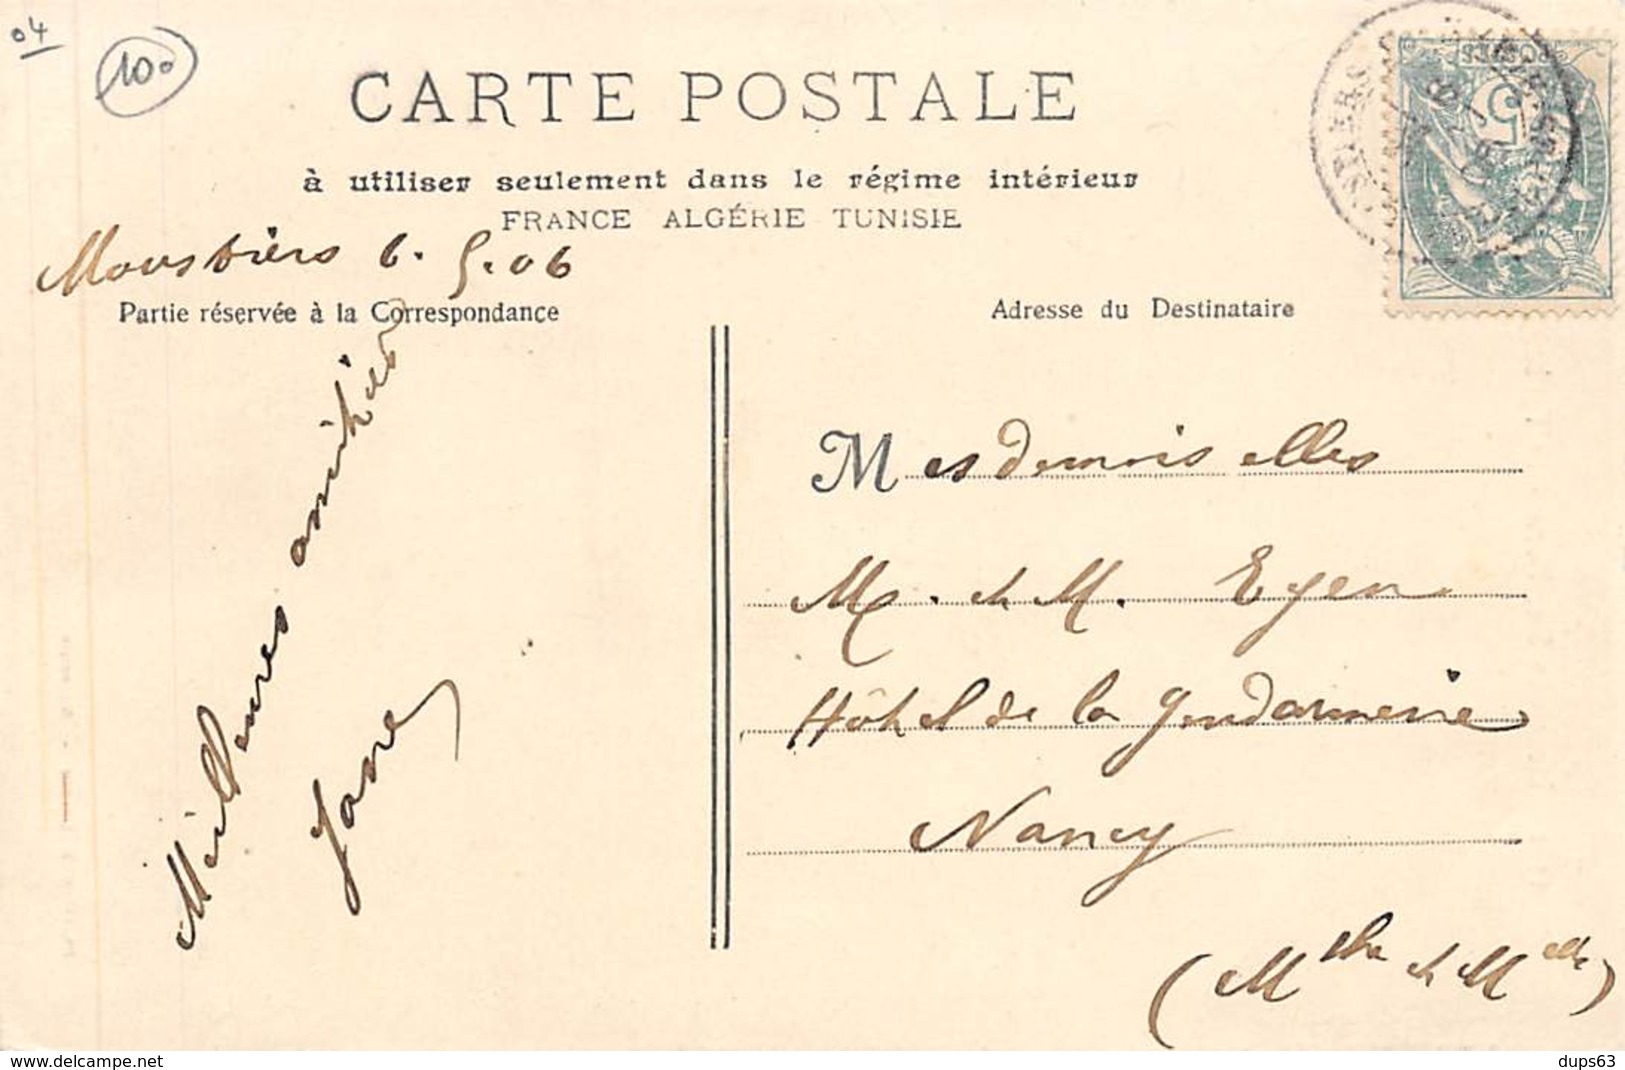 04
100
CARTE POSTALE
à utiliser seulement dans le régime intérieur
FRANCE ALGÉRIE TUNISIE
Moustiers 6.5.06
Partie réservée à la Correspondance
Meilleures amitiés
Jane
Adresse du Destinataire
Mesdemoiselles
M. et M. Eyen
Hôtel de la Gendarmerie
Nancy
(Mthe et M elle)
POSTES
5
www.delcampe.net
dups63